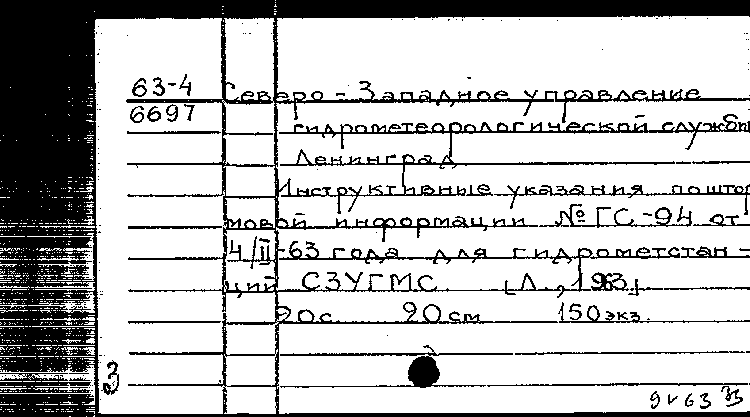 63-4 Северо-Западное управление
6697 гидрометеорологической службы
Ленинград
Инструктивные указания по штор
мовой информации № ГС-94 от
4/II-63 года для гидрометстан-
ций СЗУГМС. [Л., 1963].
20с. 20см 150экз.
З
9 V 63